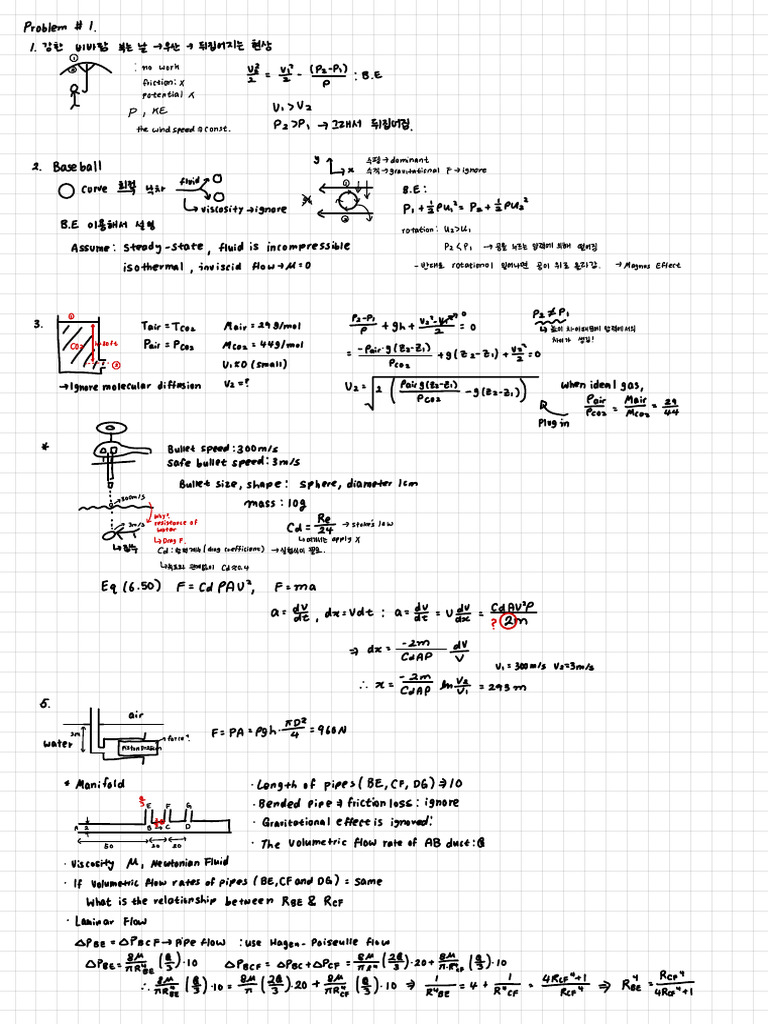 Problem # 1.
1. 강한 비바람 부는 날 → 우산 → 뒤집어지는 현상
①
②
: no work
friction: X
potential X
P, KE
the wind speed is const.
V₂²/2 = V₁²/2 - (P₂-P₁)/ρ : B.E
V₁ > V₂
P₂ > P₁ → 그래서 뒤집어짐.
2. Baseball
curve 회전 낙차
fluid
↳ viscosity → ignore
B.E 이용해서 설명
Assume: steady-state, fluid is incompressible
isothermal, inviscid flow → μ=0
y
x
수평 → dominant
수직 → gravitational F → ignore
①
②
B.E:
P₁ + ½ρU₁² = P₂ + ½ρU₂²
rotation: U₂>U₁
P₂<P₁ → 공을 누르는 압력에 의해 떨어짐
- 반대로 rotational 일어나면 공이 위로 올라감. → Magnus Effect
3.
①
CO₂
h=20ft
②
→ Ignore molecular diffusion
Tair = TCO₂
Pair = PCO₂
Mair = 29 g/mol
MCO₂ = 44 g/mol
V₁≈0 (small)
V₂ = ?
(P₂-P₁)/ρ + gh + (V₂²-V₁²)/2 = 0
0
= -ρair·g(z₂-z₁)/ρCO₂ + g(z₂-z₁) + V₂²/2 = 0
V₂ = √(2(ρair g(z₂-z₁)/ρCO₂ - g(z₂-z₁)))
P₂ ≠ P₁
↳ 높이 차이때문에 압력에서의
차이가 생김!
when ideal gas,
ρair/ρCO₂ = Mair/MCO₂ = 29/44
Plug in
*
Bullet speed: 300m/s
safe bullet speed: 3m/s
Bullet size, shape: sphere, diameter 1cm
mass: 10g
300m/s
why?
resistance of
water
↳ Drag F.
3m/s
Cd = Re/24 → stoke's law
↳ 여기서는 apply X
Cd: (drag coefficient) → 실험식이 필요.
Cd≈0.4
Eq (6.50) F = CdρAV², F = ma
a = dv/dt, dx = Vdt : a = dv/dt = V dv/dx = CdAV²ρ/2m
?
⇒ dx = -2m/CdAρ dV/V
V₁ = 300m/s V₂=3m/s
∴ x = -2m/CdAρ ln V₂/V₁ = 293m
5.
air
2m
water
Piston Diagram
force?
F = PA = ρgh · πD²/4 = 960N
* Manifold
Q/3
E F G
A 2 B 2R C D
50 20 20
· Length of pipes (BE, CF, DG) ⇒ 10
· Bended pipe ⇒ friction loss: ignore
· Gravitational effect is ignored.
· The volumetric flow rate of AB duct: Q
· Viscosity μ, Newtonian Fluid
· If volumetric flow rates of pipes (BE, CF and DG) = same
What is the relationship between RBE & RCF
· Laminar Flow
ΔPBE = ΔPBCF → Pipe flow : use Hagen-Poiseulle flow
ΔPBE = 8μ/πR⁴BE (Q/3)·10 ΔPBCF = ΔPBC + ΔPCF = 8μ/πR⁴ (2Q/3)·20 + 8μ/πR⁴CF (Q/3)·10
∴ 8μ/πR⁴BE (Q/3)·10 = 8μ/π (2Q/3)·20 + 8μ/πR⁴CF (Q/3)·10 ⇒ 1/R⁴BE = 4 + 1/R⁴CF = 4RCF⁴+1/RCF⁴ ⇒ RBE⁴ = RCF⁴/4RCF⁴+1